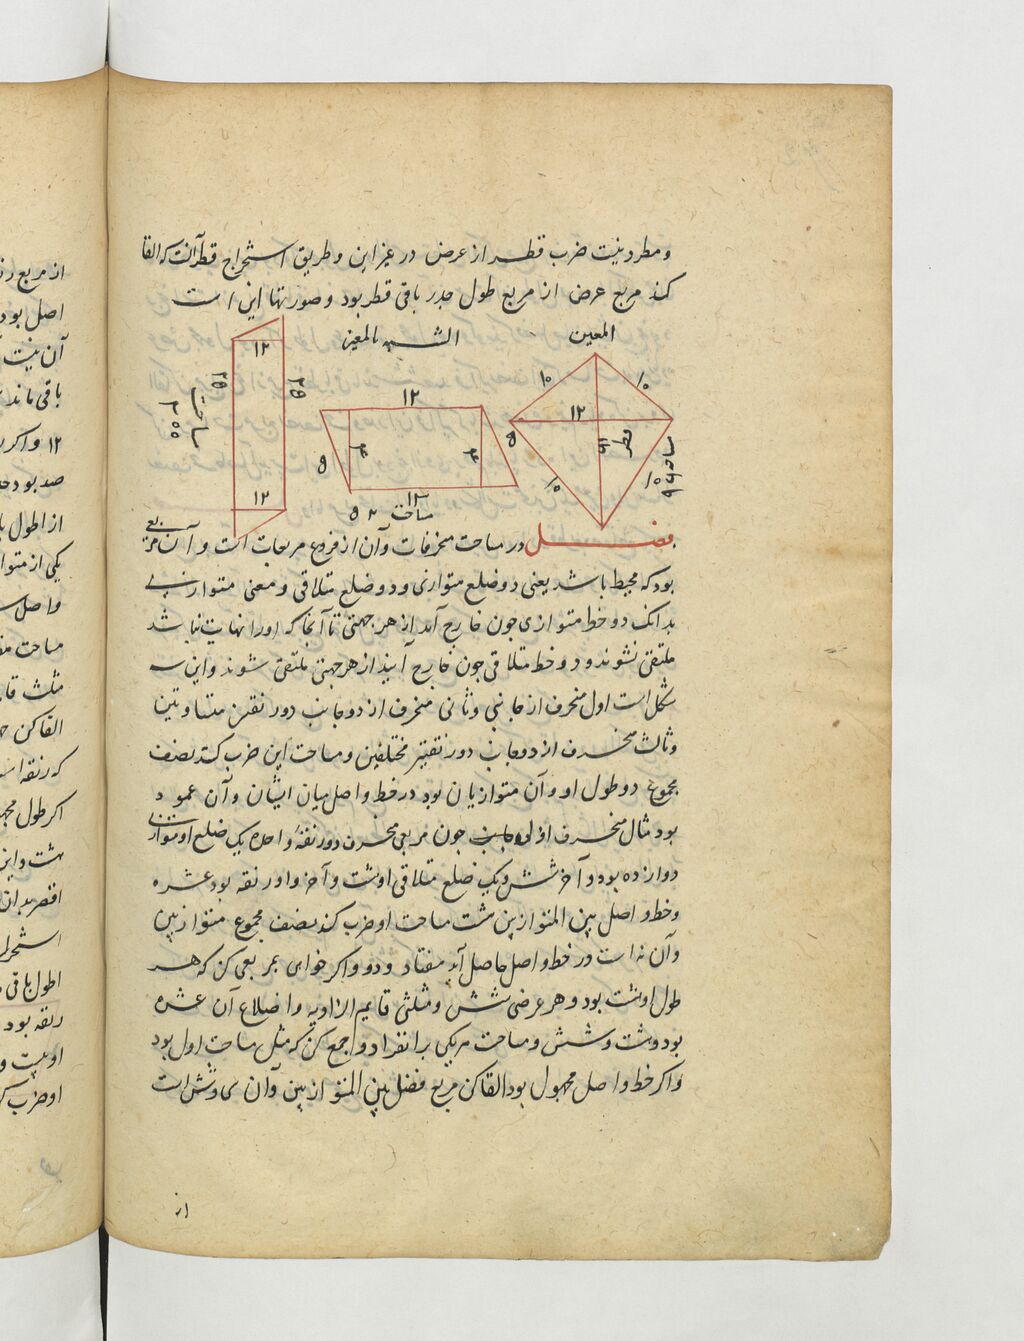 ومطرد نیست ضرب قطر از عرض در غیر این و طریق استخراج قطر آنست که القا
کند مربع عرض از مربع طول جذر باقی قطر بود و صورتها این است
المعین
الشبیه بالمعین
۱۰
۱۰
۱۲
قطر
۱۶
۱۰
۱۰
مساحة ۹۶
۱۲
۱۲
۵
۵
۴
۴
مساحت
۱۲
۱۲
مساحت
فصل در مساحت منحرفات و آن از فروع مربعات است و آن مربعی
بود که محیط باشد یعنی دو ضلع متوازی و دو ضلع متلاقی و معنی متوازی
بدانک دو خط متوازی چون خارج آید از هر جهتی تا آنجا که او را نهایت نباشد
ملتقی نشوند و دو خط متلاقی جون خارج آیند از هر جهتی ملتقی شوند و این سه
شکل است اول منحرف از جانبی و ثانی منحرف از دو جانب دو رنقتین متساویتین
و ثالث منحرف از دو جانب دو رنقتین مختلفین و مساحت این ضرب کند نصف
مجموع دو طول او و آن متوازیان بود در خط واصل میان ایشان و آن عمود
بود مثال منحرف از جانب جون مربعی منحرف ذو رنقة واحده یک ضلع او متوازی
دوازده بود و آخر شش و یک ضلع متلاقی او هشت و آخر و او رنقه بود عشره
و خط واصل بین المتوازیین هشت مساحت او ضرب کند نصف مجموع متوازیین
و آن نه است در خط واصل حاصل آید هفتاد و دو و اکر خوای بمربعی کن که هر
طول او هشت بود و هر عرضی شش و مثلثی قایم الزاویه و اضلاع آن عشره
بود و هشت و شش و مساحت هریکی بانفراد و جمع کن که مثل مساحت اول بود
و اکر خط واصل مجهول بود القا کن مربع فضل بین المتوازیین و آن سی و شش است
از